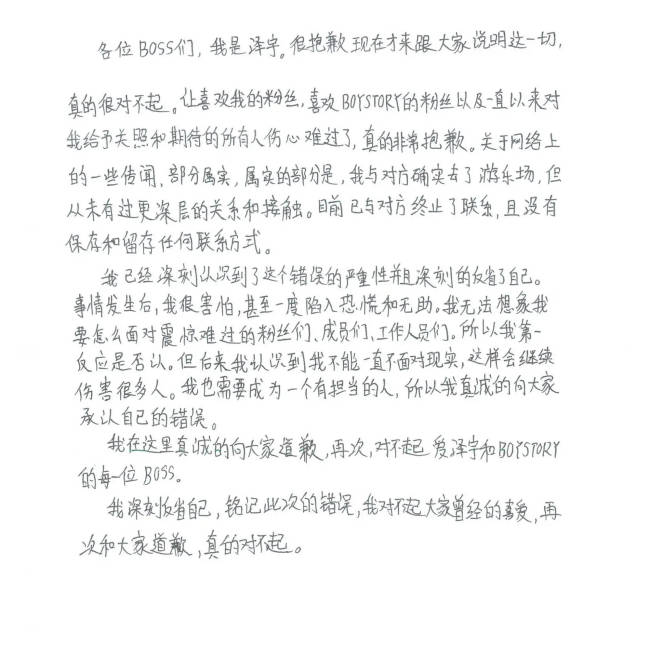 各位BOSS们，我是泽宇。很抱歉现在才来跟大家说明这一切，
真的很对不起。让喜欢我的粉丝，喜欢BOYSTORY的粉丝以及一直以来对
我给予关照和期待的所有人伤心难过了，真的非常抱歉。关于网络上
的一些传闻，部分属实，属实的部分是，我与对方确实去了游乐场，但
从未有过更深层的关系和接触。目前已与对方终止了联系，且没有
保存和留存任何联系方式。
我已经深刻认识到了这个错误的严重性并且深刻的反省了自己。
事情发生后，我很害怕，甚至一度陷入恐慌和无助。我无法想象我
要怎么面对震惊难过的粉丝们、成员们、工作人员们。所以我第一
反应是否认。但后来我认识到我不能一直不面对现实，这样会继续
伤害很多人。我也需要成为一个有担当的人，所以我真诚的向大家
承认自己的错误。
我在这里真诚的向大家道歉，再次，对不起 爱泽宇和BOYSTORY
的每一位BOSS。
我深刻反省自己，铭记此次的错误，我对不起大家曾经的喜爱，再
次和大家道歉，真的对不起。